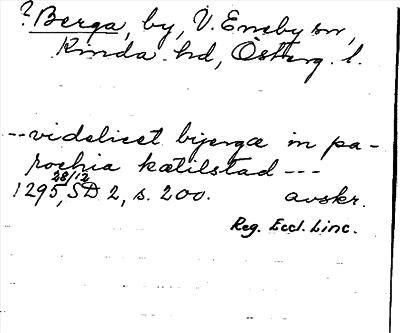 ? Berga, by, V. Eneby sn,
Kinda hd, Österg. l.
--- videlicet bijergæ in pa-
rochia katilstad ---
28/12
1295, SD 2, s. 200. avskr.
Reg. Eccl. Linc.